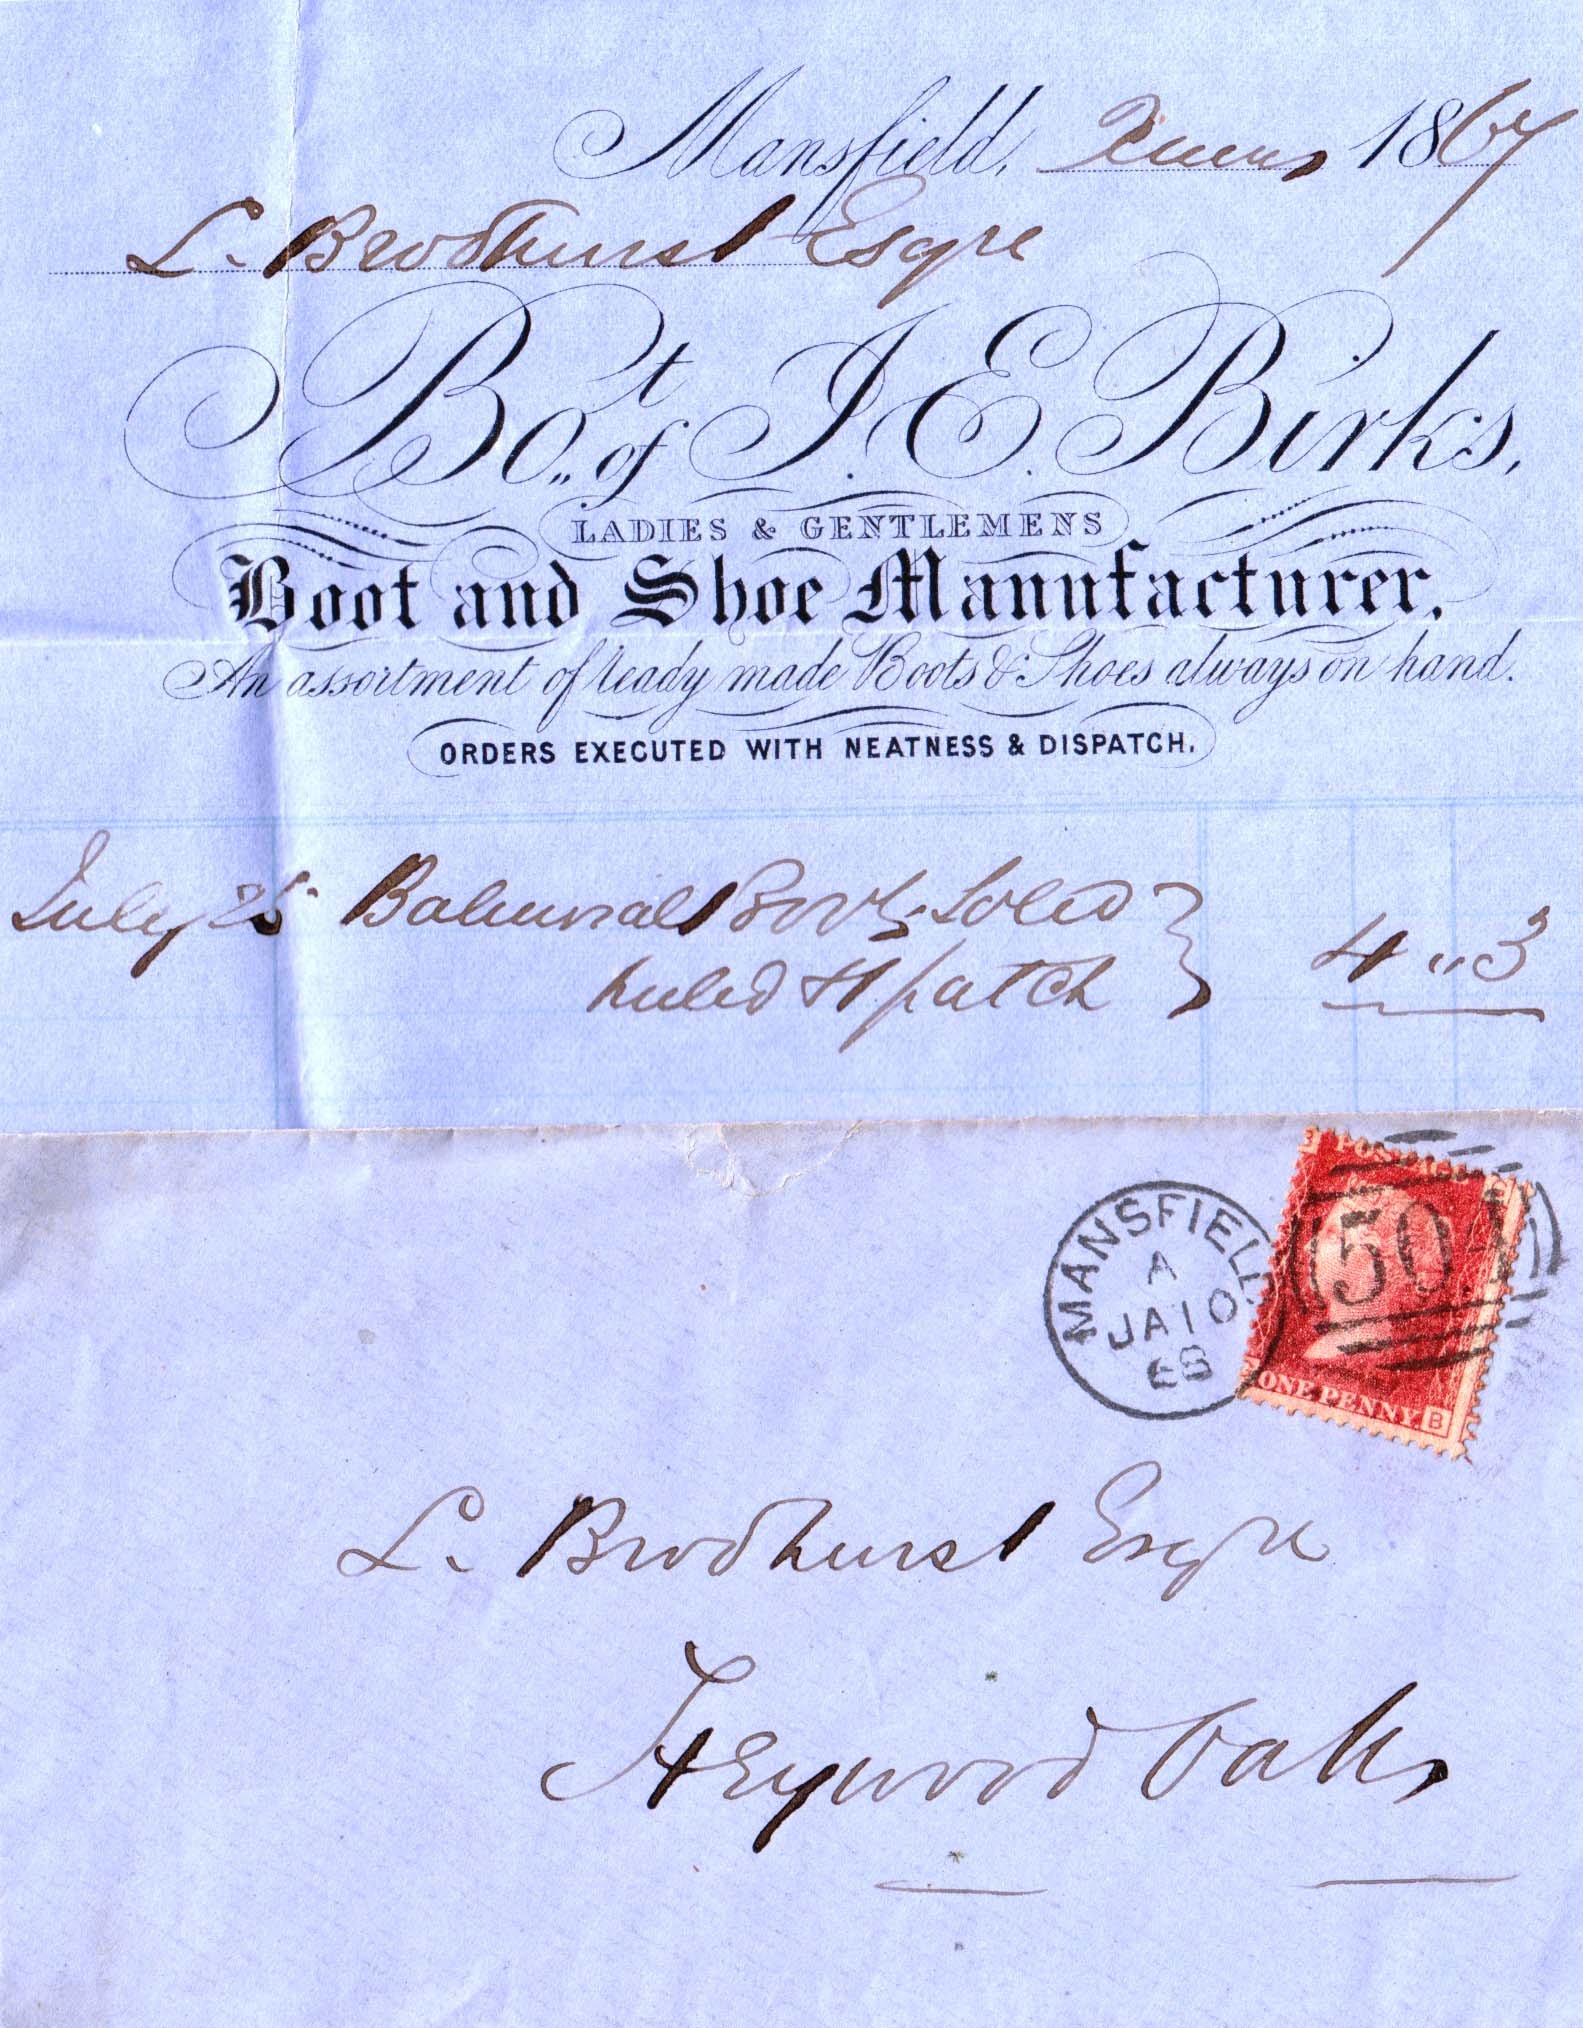 Mansfield, Xmas 1867
L. Brodhurst Esqre
Bo,,t of J. E. Birks,
LADIES & GENTLEMENS
Boot and Shoe Manufacturer,
An assortment of ready made Boots & Shoes always on hand.
ORDERS EXECUTED WITH NEATNESS & DISPATCH.
July 25 Balmoral Boots Soled
heeled & 1 patch 4 " 3
POSTAGE
MANSFIELD
A
JA 10
68
504
ONE PENNY B
L. Brodhurst Esqre
Heywood Oaks